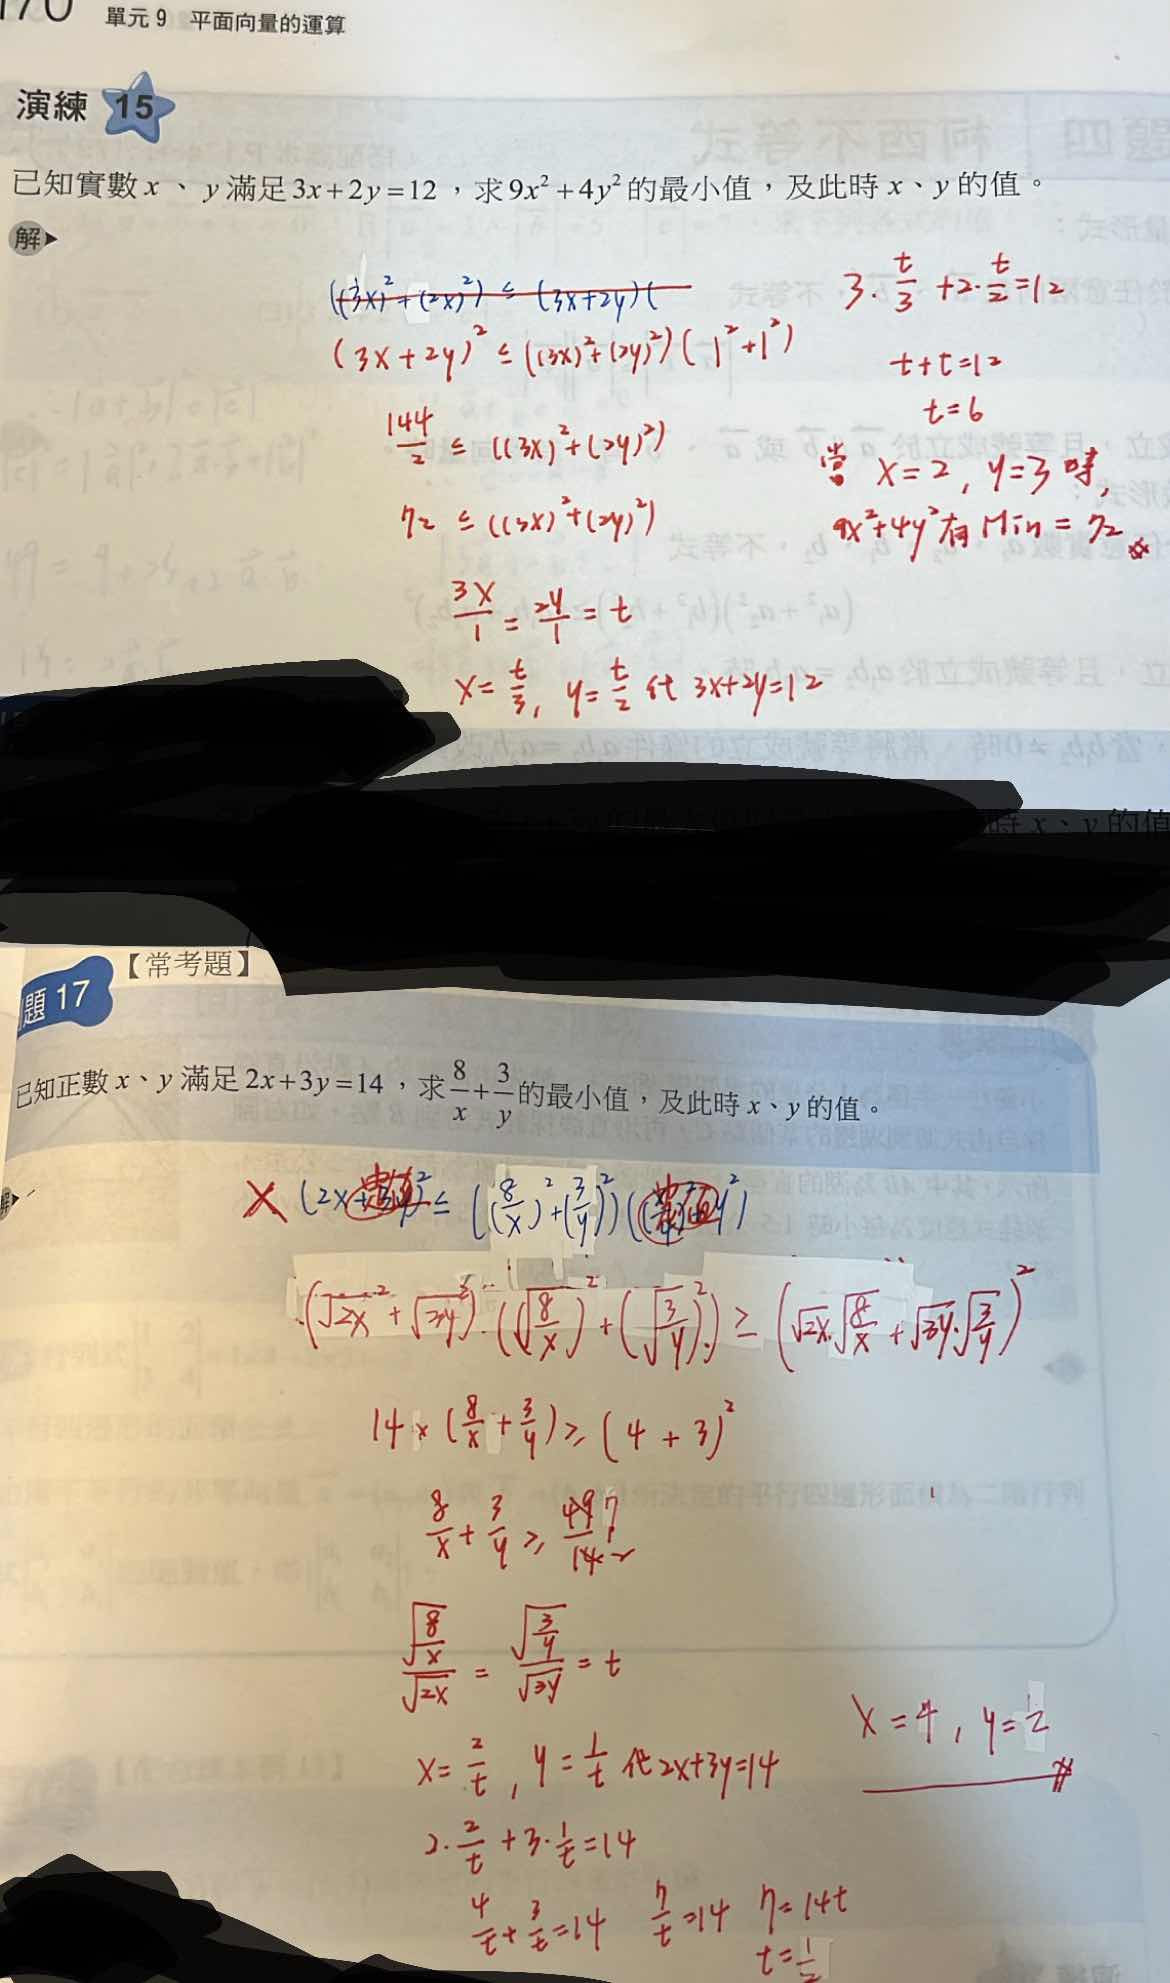 170 單元 9 平面向量的運算
演練 15
已知實數 x 、 y 滿足 3x+2y=12,求 9x²+4y² 的最小值,及此時 x、y 的值。
解
((3x)²+(2x)²) ≤ (3x+2y)(
(3x+2y)² ≤ ((3x)²+(2y)²)(1²+1²)
144/2 ≤ ((3x)²+(2y)²)
72 ≤ ((3x)²+(2y)²)
3x/1 = 2y/1 = t
x=t/3, y=t/2 代 3x+2y=12
3·t/3+2·t/2=12
t+t=12
t=6
當 x=2, y=3 時,
9x²+4y²有 Min = 72
時 x、y 的值
【常考題】
題 17
已知正數 x、y 滿足 2x+3y=14,求 8/x+3/y 的最小值,及此時 x、y 的值。
解
(√2x²+√3y²)·((√8/x)²+(√3/y)²) ≥ (√2x·√8/x+√3y·√3/y)²
14×(8/x+3/y) ≥ (4+3)²
8/x+3/y ≥ 49/14 7/2
√8/x/√2x = √3/y/√3y = t
x=2/t, y=1/t 代 2x+3y=14
2·2/t+3·1/t=14
4/t+3/t=14 7/t=14 7=14t
t=1/2
x=4, y=1/2